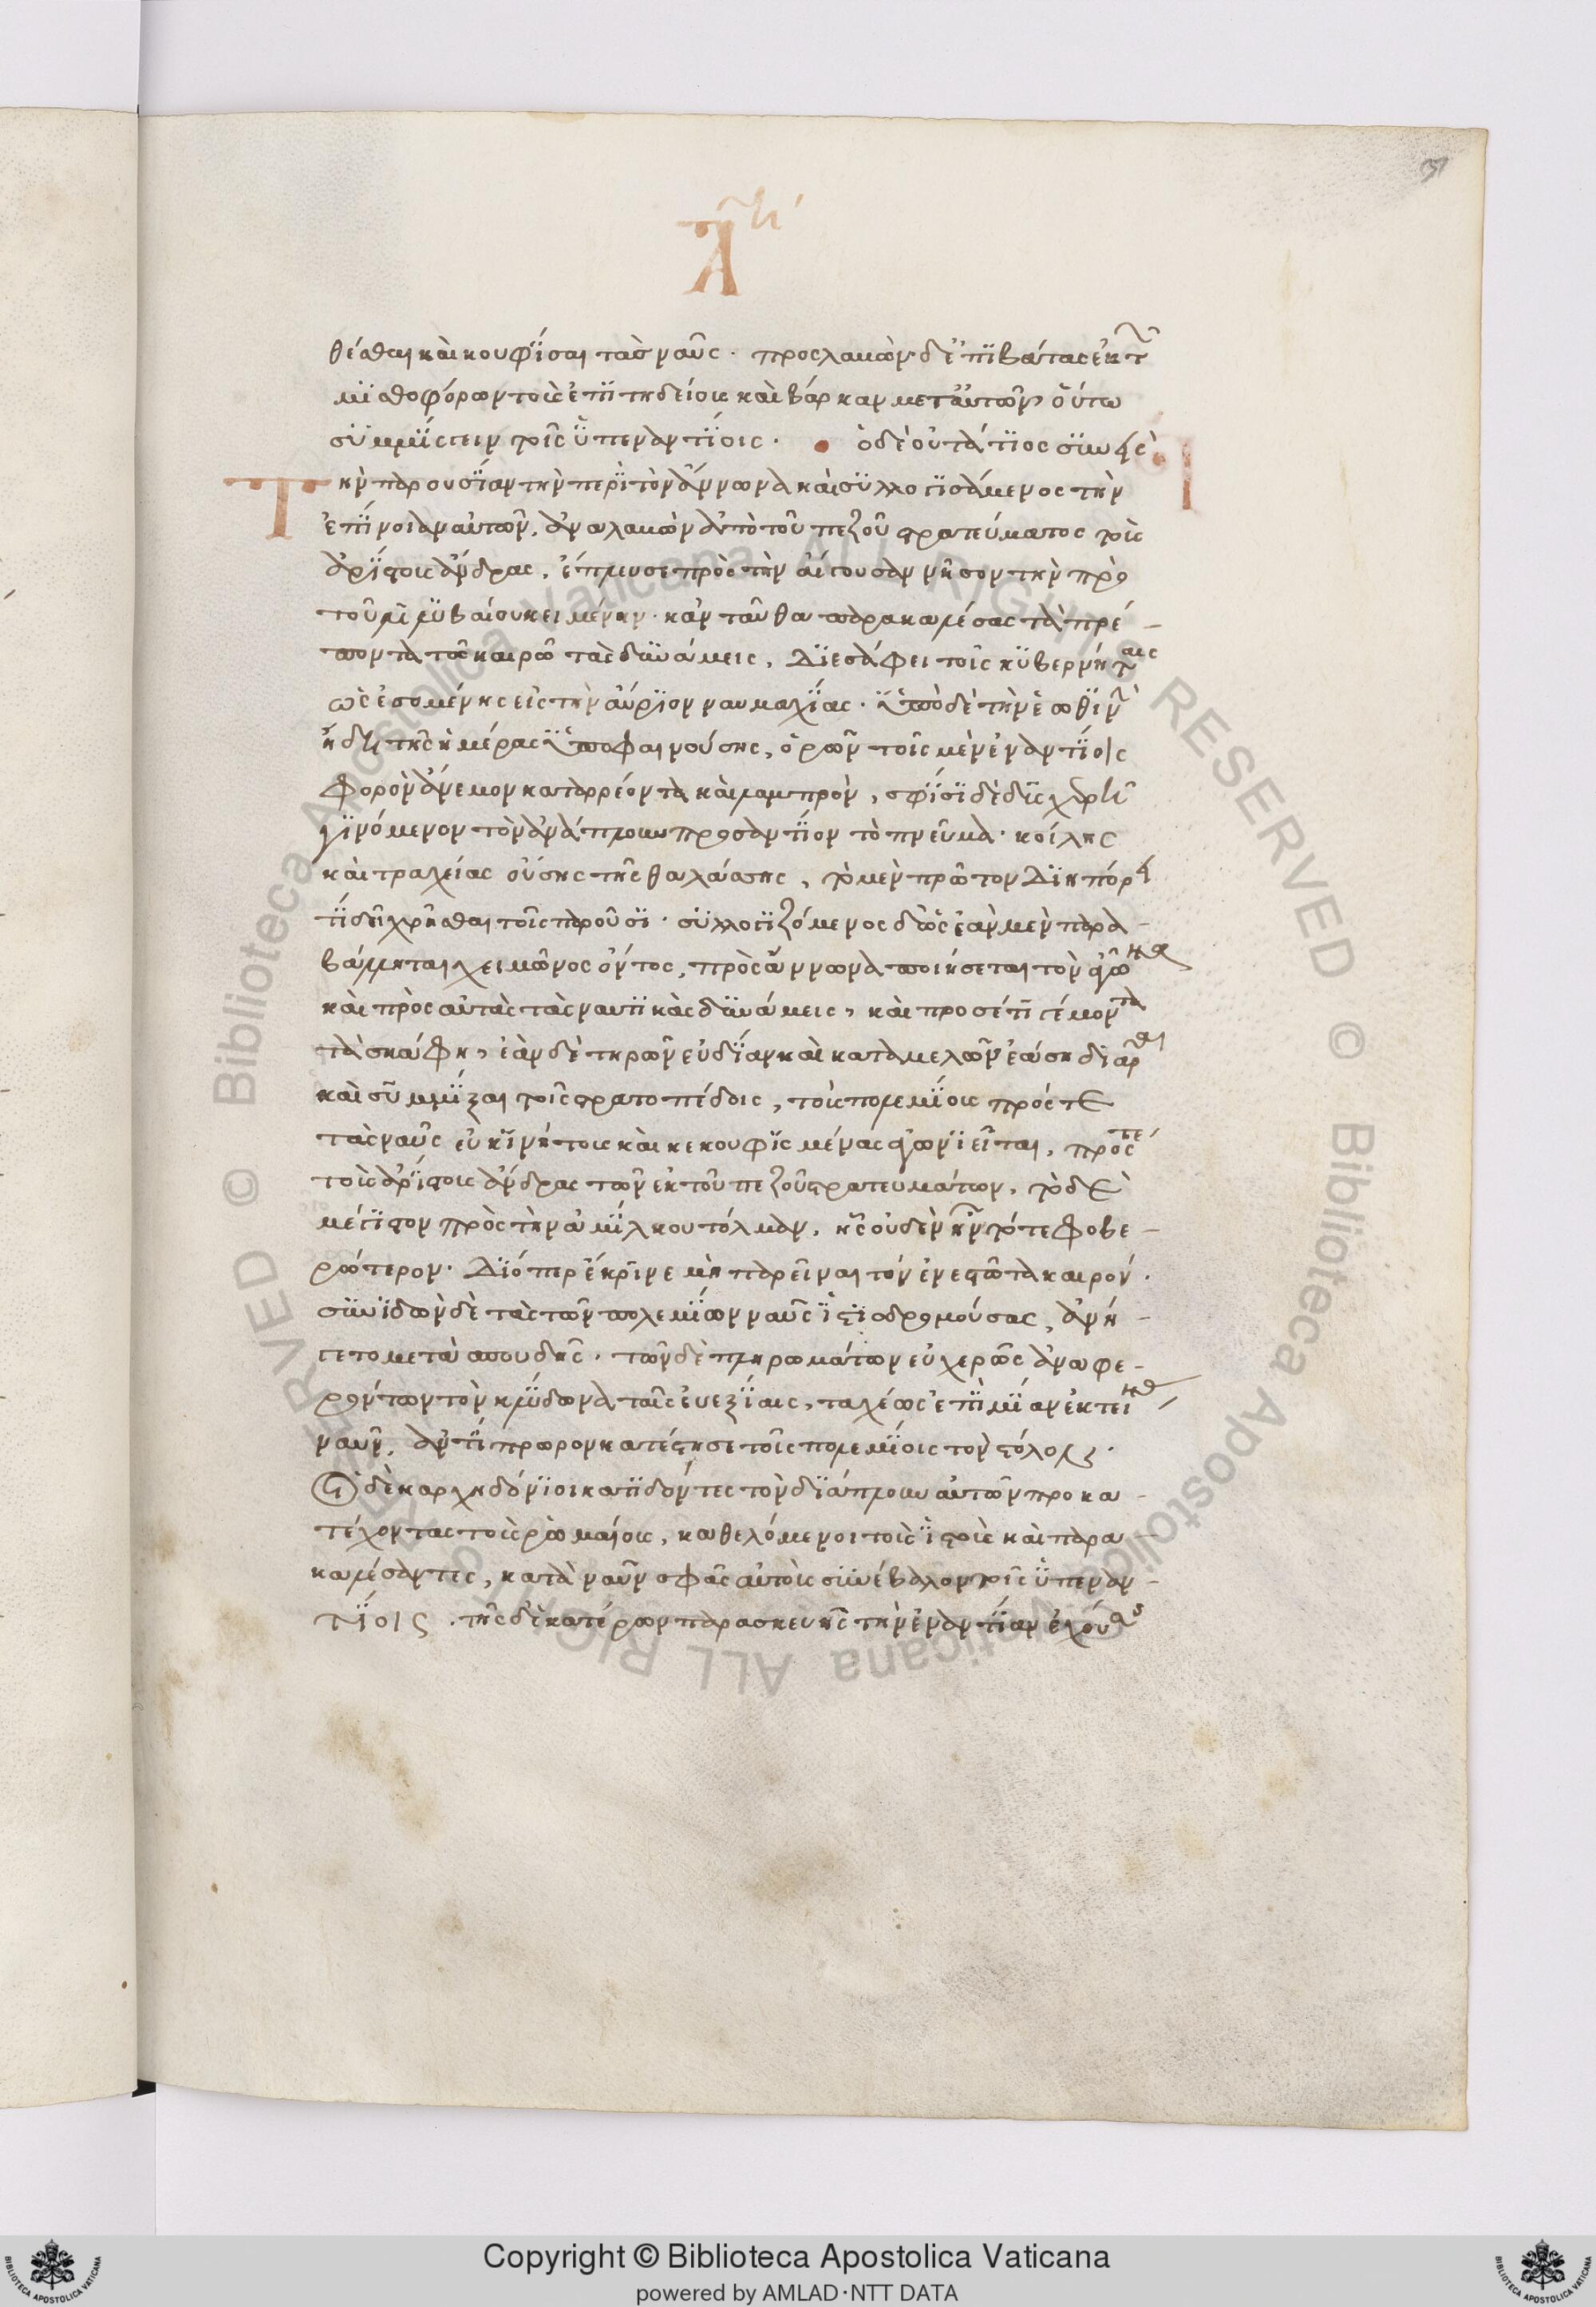 θέσθαι καὶ κουφίσαι τὰς ναῦς. προσλαβὼν δ' ἐπιβάτας ἐκ τῶν
μισθοφόρων τοὺς ἐπιτηδείους καὶ βάρκαν μετ' αὐτῶν οὕτω
συμμίσγειν τοῖς ὑπεναντίοις. ὁ δὲ λουτάτιος συνεὶς
τὴν παρουσίαν τὴν περὶ τὸν ἄννωνα καὶ συλλογισάμενος τὴν
ἐπίνοιαν αὐτῶν, ἀναλαβὼν ἀπὸ τοῦ πεζοῦ στρατεύματος τοὺς
ἀρίστους ἄνδρας, ἔπλευσε πρὸς τὴν αἰγοῦσαν νῆσον τὴν πρὸ
τοῦ λιλυβαίου κειμένην. κἀνταῦθα παρακαλέσας τὰ πρέ-
ποντα τῷ καιρῷ τὰς δυνάμεις, διεσάφει τοῖς κυβερνήταις
ὡς ἐσομένης εἰς τὴν αὔριον ναυμαχίας. ὑπὸ δὲ τὴν ἑωθινὴν
ἤδη τῆς ἡμέρας ὑποφαινούσης, ὁρῶν τοῖς μὲν ἐναντίοις
φορὸν ἄνεμον καταρρέοντα καὶ λαμπρὸν, σφίσι δὲ δυσχερῆ
γινόμενον τὸν ἀνάπλουν πρὸς ἀντίον τὸ πνεῦμα. κοίλης
καὶ τραχείας οὔσης τῆς θαλάσσης, τὸ μὲν πρῶτον διηπόρει
τί δεῖ χρῆσθαι τοῖς παροῦσι. συλλογιζόμενος δ' ὡς ἐὰν μὲν παρα-
βάλληται χειμῶνος ὄντος, πρὸς ἄννωνα ποιήσεται τὸν ἀγῶνα
καὶ πρὸς αὐτὰς τὰς ναυτικὰς δυνάμεις, καὶ πρὸς ἔτι γέμοντα
τὰ σκάφη, ἐὰν δὲ τηρῶν εὐδίαν καὶ καταμέλλων ἐάσῃ διᾶραι
καὶ συμμῖξαι τοῖς στρατοπέδοις, τοὺς πολεμίους πρός τε
τὰς ναῦς εὐκινήτους καὶ κεκουφισμένας ἀγωνιεῖται, πρός τε
τοὺς ἀρίστους ἄνδρας τῶν ἐκ τοῦ πεζοῦ στρατευμάτων, τὸ δὲ
μέγιστον πρὸς τὴν ἀμίλκου τόλμαν, ἧς οὐδὲν ἦν τότε φοβε-
ρώτερον. διόπερ ἔκρινε μὴ παρεῖναι τὸν ἐνεστῶτα καιρόν.
συνιδὼν δὲ τὰς τῶν πολεμίων ναῦς ἱστιοδρομούσας, ἀνή-
γετο μετὰ σπουδῆς. τῶν δὲ πληρωμάτων εὐχερῶς ἀναφε-
ρόντων τὸν κλύδωνα ταῖς εὐεξίαις, ταχέως ἐπὶ μίαν ἐκτείνας
ναῦν, ἀντίπρωρον κατέστησε τοῖς πολεμίοις τὸν στόλον.
οἱ δὲ καρχηδόνιοι κατιδόντες τὸν διάπλουν αὐτῶν προκα-
τέχοντας τοὺς ῥωμαίους, καθελόμενοι τοὺς ἱστοὺς καὶ παρα-
καλέσαντες, κατὰ ναῦν σφᾶς αὐτοὺς συνέβαλον τοῖς ὑπεναν-
τίοις. τῆς δ' ἑκατέρων παρασκευῆς τὴν ἐναντίαν ἐχούσης